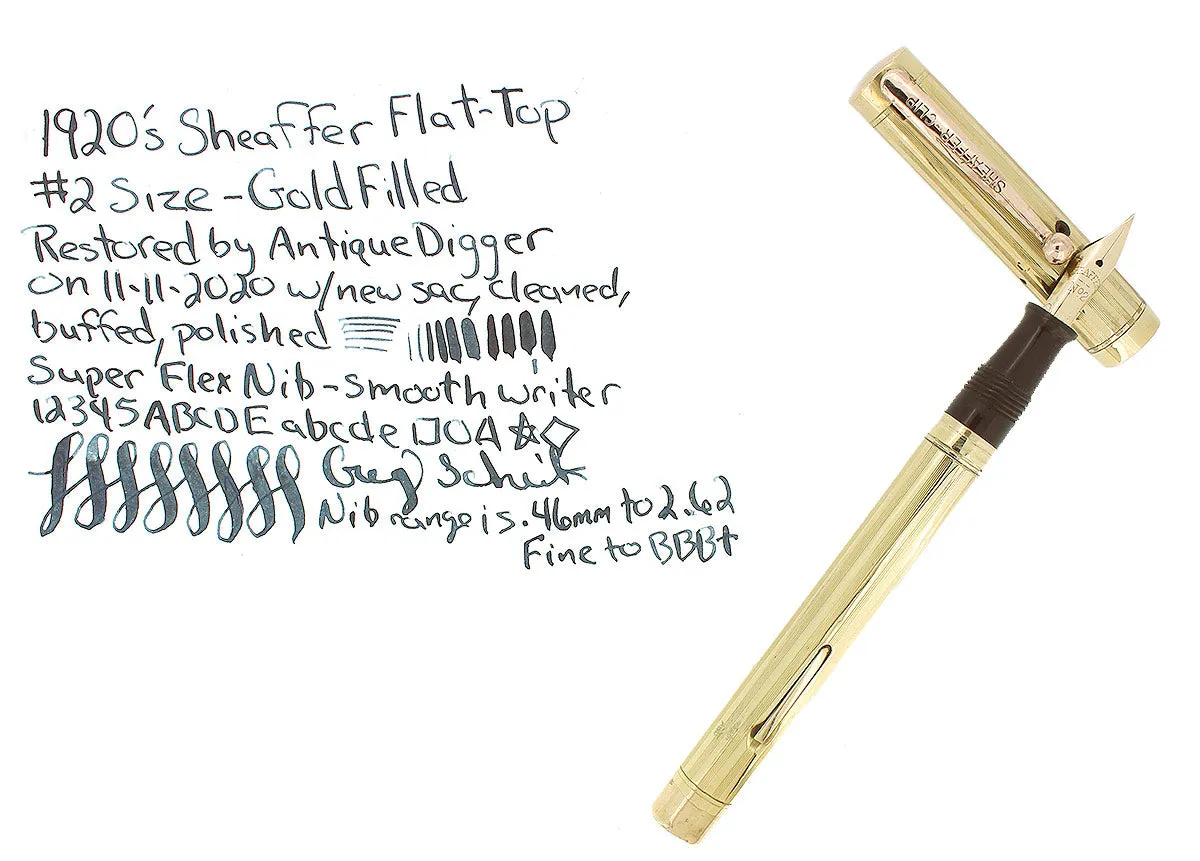 1920's Sheaffer Flat-Top
#2 Size - Gold Filled
Restored by Antique Digger
on 11-11-2020 w/new sac, cleaned,
buffed, polished
Super Flex Nib - smooth writer
12345 ABCDE abcde
Greg
Nib range is .46mm to 2.62
Fine to BBB+
SHEAFFER-CLIP